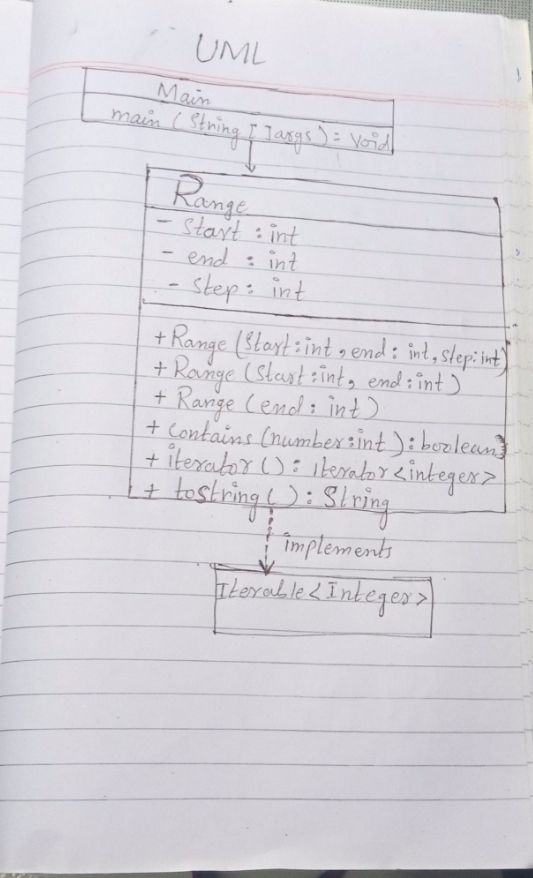 UML
Main
main (String [ ] args) : Void
Range
- Start : int
- end : int
- Step : int
+ Range (Start : int, end : int, Step : int)
+ Range (Start : int, end : int)
+ Range (end : int)
+ contains (number : int) : boolean
+ iterator () : iterator <integer>
+ toString () : String
implements
Iterable <Integer>